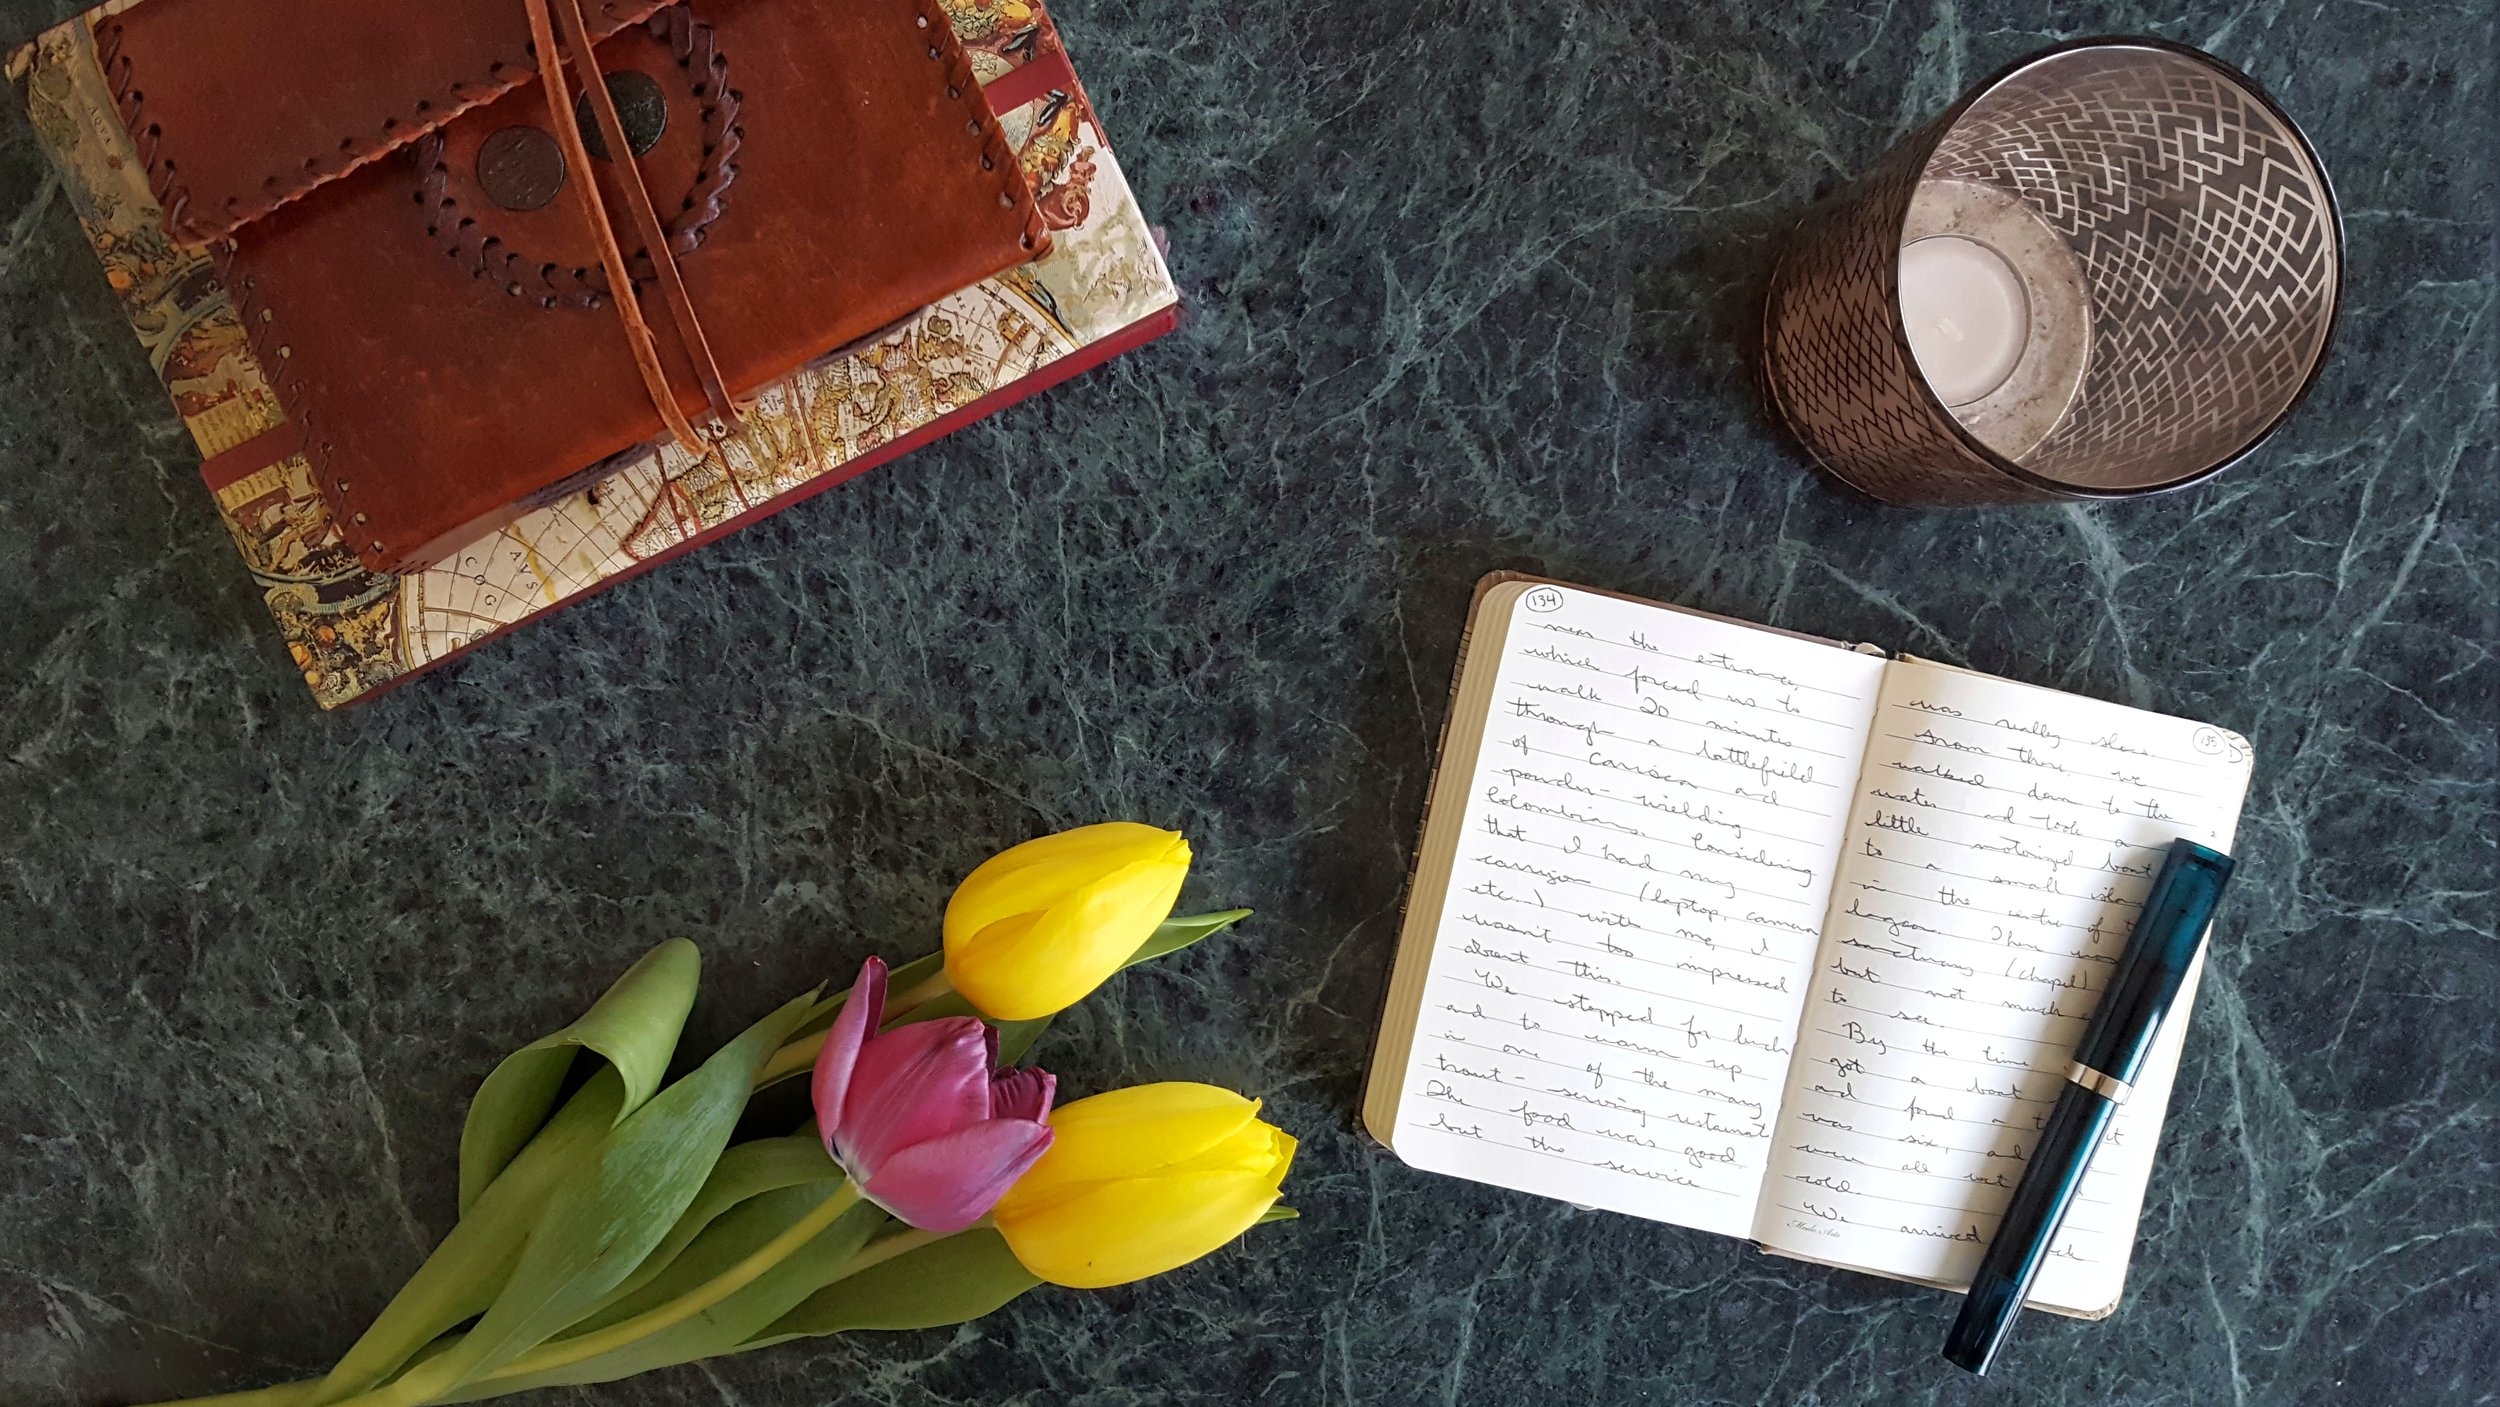 134
near the entrance,
which forced us to
walk 20 minutes
through a battlefield
of carioca and
powder-wielding
Colombians. Considering
that I had my
carryon (laptop, camera
etc..) with me, I
wasn't too impressed
about this.
We stopped for lunch
and to warm up
in one of the many
trout-serving restaurants
The food was good,
but the service
135
was really slow.
From there, we
walked down to the
water and took a
little motorized boat
to a small
in the centre of
lagoon. There was
sanctuary (chapel)
but not much
to see.
By the time
got a boat
and found a
was six, and
were all wet
cold.
We arrived
Modo Arte